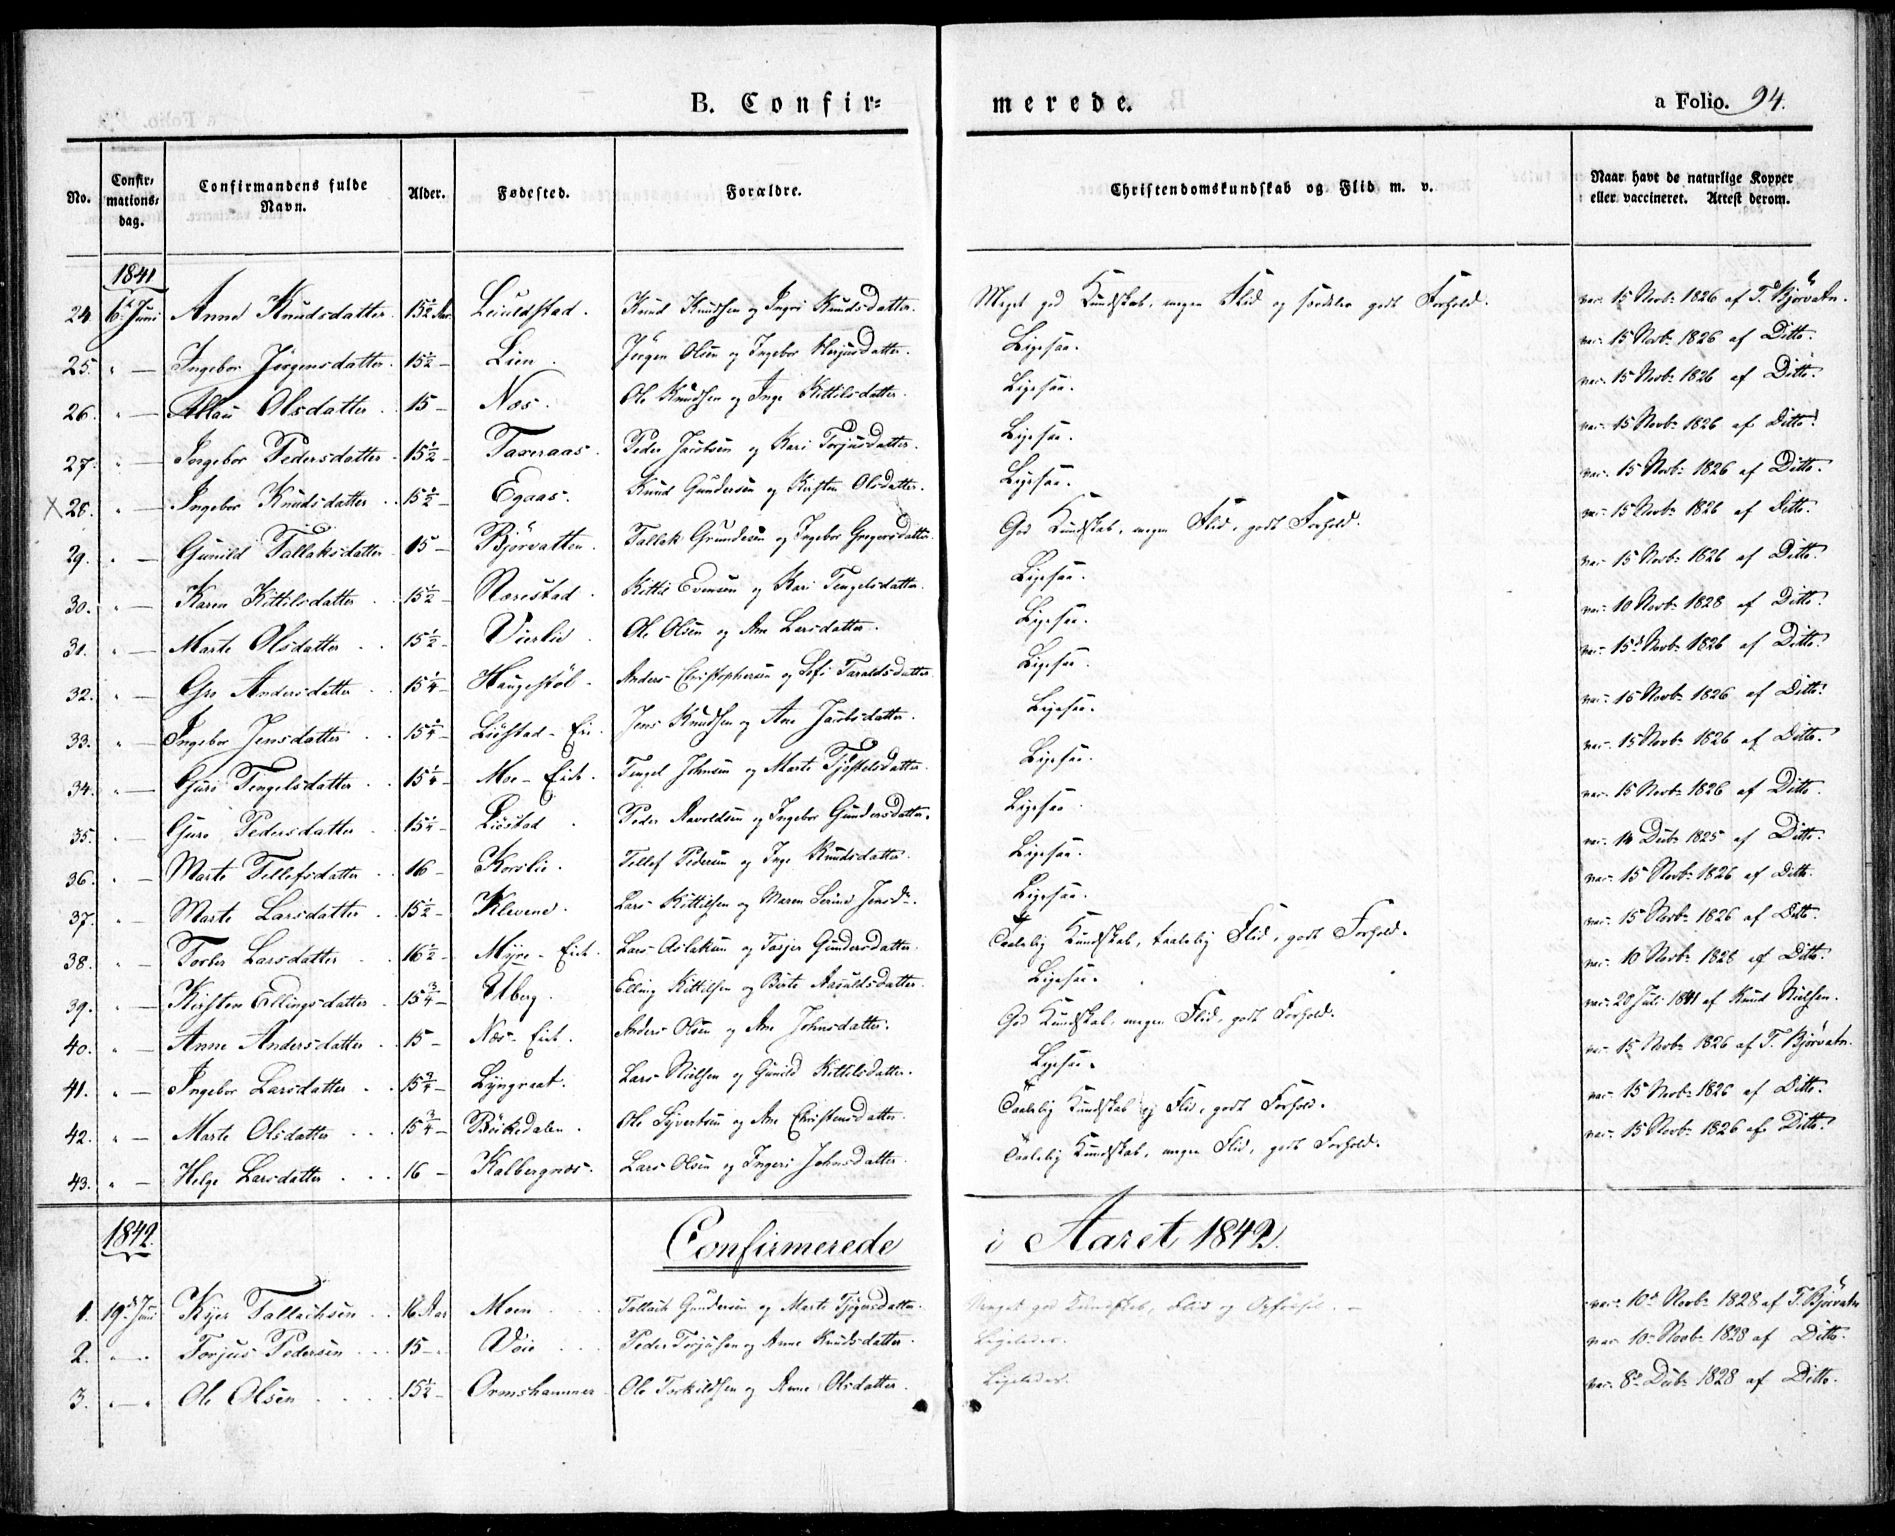 B. Confir= merede. a Folio. 94.
No. Confir= mations= dag. Confirmandens fulde Navn. Alder. Fødested. Forældre. Christendomskundskab og Flid m. v. Naar havt de naturlige Kopper eller vaccineret. Attest derom.
1841
24. 6te Juni Anne Knudsdatter. 15½ Aar. Leuldstad. Knud Knudsen og Ingri Knudsdatter. Meget god Kundskab, megen Flid og særdeles godt Forhold. vac. 15 Novb. 1826 af T. Bjørvatn.
25. " — Ingebor Jörgensdatter. 15½ — Lien. Jörgen Olsen og Ingebor Herjusdatter. Ligesaa. vac. 15 Novb. 1826 af Ditto.
26. " — Olsdatter 15 — Næs. Ole Knudsen og Inge Kittilsdatter. Ligesaa. vac. 15 Novb. 1826 af Ditto.
27. " — Ingebor Pedersdatter 15½ — Taxeraas. Peder Jacobsen og Kari Torjusdatter. Ligesaa. vac. 15 Novb. 1826 af Ditto.
X 28. " — Ingebor Knudsdatter 15½ — Egaas. Knud Gundersen og Kirsten Olsdatter. Ligesaa. vac. 15 Novb. 1826 af Ditto.
29. " — Gunild Tallaksdatter 15 — Bjørvatten. Tallak Gundersen og Ingebor Gregersdatter. God Kundskab, megen Flid, godt Forhold. vac. 15 Novb. 1826 af Ditto.
30. " — Karen Kittilsdatter 15½ — Rørestad. Kittil Evensen og Kari Tengelsdatter. Ligesaa. vac. 15 Novb. 1826 af Ditto.
31. " — Marte Olsdatter 15½ — Vierlie. Ole Olsen og Ane Larsdatter. Ligesaa. vac. 10 Novb. 1828 af Ditto.
32. " — Gro Andersdatter 15¼ — Haugestøl. Anders Christophersen og Sofi Taraldsdatter. Ligesaa. vac. 15de Novb. 1826 af Ditto.
33. " — Ingebor Jensdatter 15¼ — Liøstad - Jens Knudsen og Ane Jacobsdatter. Ligesaa. vac. 15 Novb. 1826 af Ditto.
34. " — Guri Tengelsdatter 15¼ — Moe - Eie. Tengel Johnsen og Marte Tjøstelsdatter. Ligesaa. vac. 15 Novb. 1826 af Ditto.
35. " — Guro Pedersdatter 15¼ — Liøstad Peder Aavoldsen og Ingebor Gundersdatter. Ligesaa. vac. 15 Novb. 1826 af Ditto.
36. " — Marte Tellefsdatter 16 — Korslie. Tellef Pedersen og Inge Knudsdatter. Ligesaa. vac. 14 Decb. 1825 af Ditto.
37. " — Marte Larsdatter 15½ — Klevene. Lars Kittilsen og Maren Serine Jensd. Ligesaa. vac. 15 Novb. 1826 af Ditto.
38. " — Torber Larsdatter 16½ — Myre - Eie. Lars Aslaksen og Tasjer Gundersdatter. Taalelig Kundskab, taalelig Flid, godt Forhold. vac. 15 Novb. 1826 af Ditto.
39. " — Kirsten Ellingsdatter 15¾ — Uberg. Elling Kittilsen og Birte Aasuldsdatter. Ligesaa. vac. 10 Novb. 1828 af Ditto.
40. " — Anne Andersdatter 15 — Næs - Eie. Anders Olsen og Ane Johnsdatter. God Kundskab, megen Flid, godt Forhold. vac. 20 Juli 1841 af Knud Nielsen.
41. " — Ingebor Larsdatter 15¾ — Lyngraat. Lars Nielsen og Gunild Kittilsdatter. Ligesaa. vac. 15 Novb. 1826 af T. Bjørvatn.
42. " — Marte Olsdatter 15¾ — Bøikedalen. Ole Syvertsen og Ane Christensdatter. Taalelig Kundskab og Flid, godt Forhold. vac. 15 Novb. 1826 af Ditto.
43. " — Helge Larsdatter 16 — Kalbergnæs. Lars Olsen og Ingeri Johnsdatter. Taalelig Kundskab, megen Flid, godt Forhold. vac. 15 Novb. 1826 af Ditto.
1842. Confirmerede i Aaret 1842.
1. 19de Juni Tallachsen 16 Aar Moen Tallach Gundersen og Marte Tjøgersdatter. Meget god Kundskab, Flid og Opførsel. vac. 10de Novb. 1828 af T. Bjørvatn
2. " — Torjus Pedersen 15 — Vöie Peder Torjusen og Anne Knudsdatter. Ligeledes. vac. 10 Novb. 1828 af Ditto.
3. " — " Ole Olsen 15½ — Ormshammer Ole Torkildsen og Anne Olsdatter. Ligeledes. vac. 8de Decb. 1828 af Ditto.